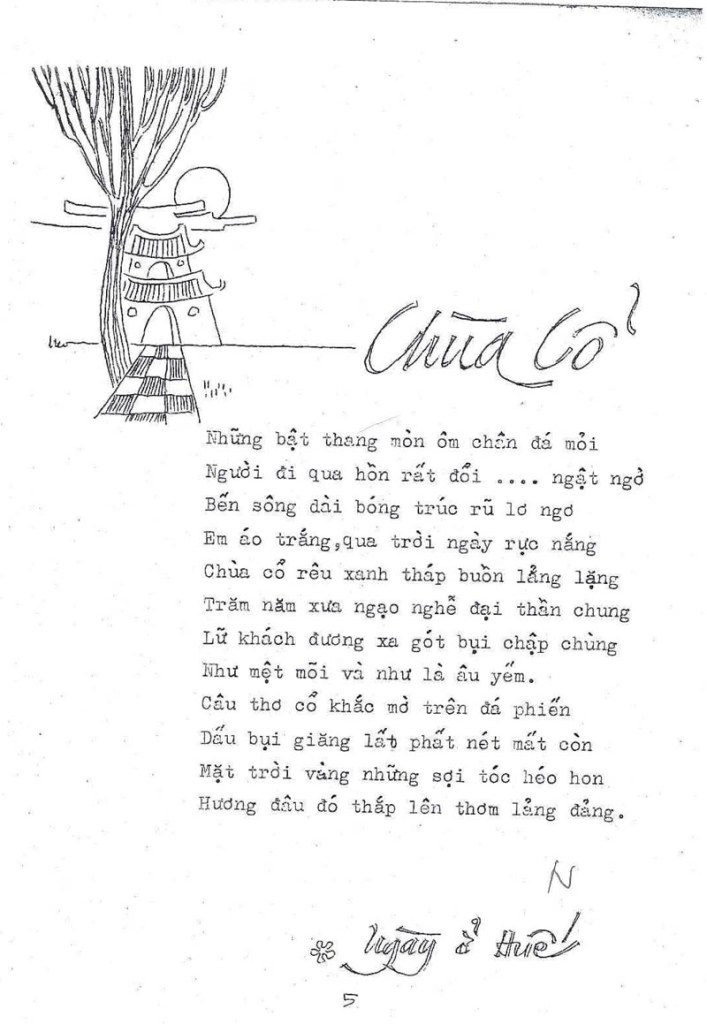 Chùa Cổ
Những bật thang mòn ôm chân đá mỏi
Người đi qua hồn rất đổi .... ngật ngờ
Bến sông dài bóng trúc rũ lơ ngơ
Em áo trắng,qua trời ngày rực nắng
Chùa cổ rêu xanh tháp buồn lẳng lặng
Trăm năm xưa ngạo nghễ đại thần chung
Lữ khách đương xa gót bụi chập chùng
Như mệt mõi và như là âu yếm.
Câu thơ cổ khắc mờ trên đá phiến
Dấu bụi giăng lất phất nét mất còn
Mặt trời vàng những sợi tóc héo hon
Hương đâu đó thắp lên thơm lảng đảng.
N
Ngày ở Huế
5